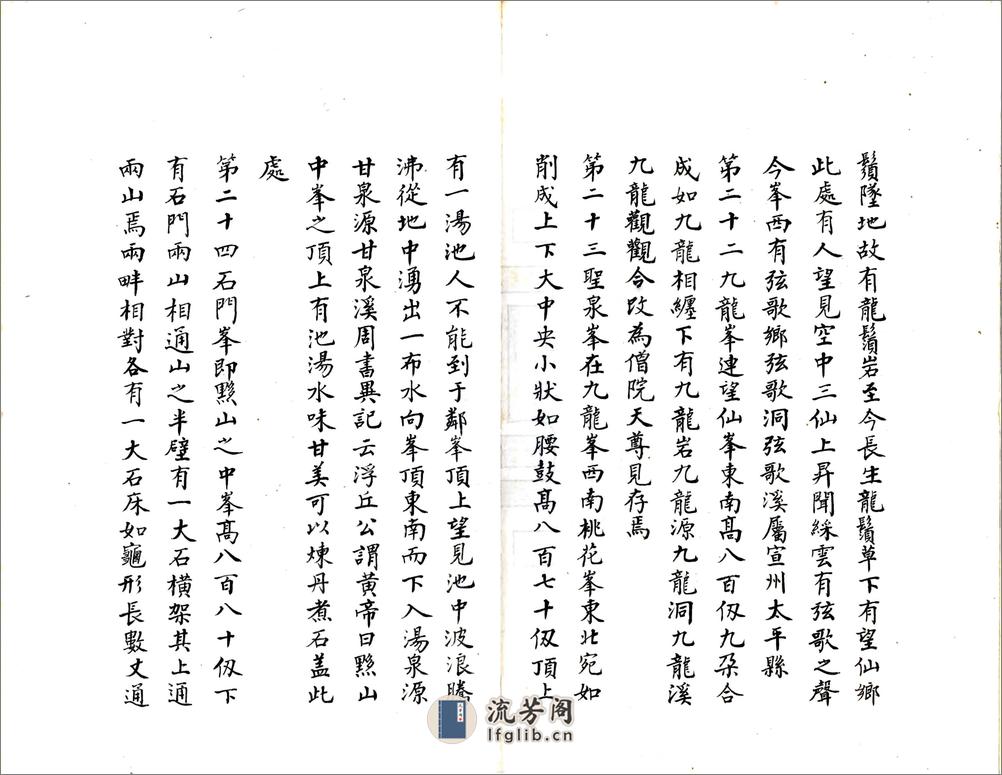 鬚墜地故有龍鬚岩至今長生龍鬚草下有望仙鄉
此處有人望見空中三仙上昇聞綵雲有弦歌之聲
今峯西有弦歌鄉弦歌洞弦歌溪屬宣州太平縣
第二十二九龍峯連望仙峯東南髙八百仭九朶合
成如九龍相纏下有九龍岩九龍源九龍洞九龍溪
九龍觀觀合改為僧院天尊見存焉
第二十三聖泉峯在九龍峯西南桃花峯東北宛如
削成上下大中央小狀如腰鼓髙八百七十仭頂上
有一湯池人不能到于鄰峯頂上望見池中波浪騰
沸從地中湧出一布水向峯頂東南而下入湯泉源
甘泉源甘泉溪周書異記云浮丘公謂黄帝曰黟山
中峯之頂上有池湯水味甘美可以煉丹煮石盖此
處
第二十四石門峯即黟山之中峯髙八百八十仭下
有石門兩山相通山之半壁有一大石橫架其上通
兩山焉兩畔相對各有一大石床如龜形長數丈通
流芳阁
lfglib.cn